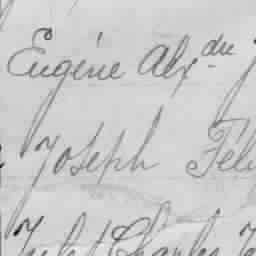 Eugène Alx.dre
Joseph Féli
Jules Charles